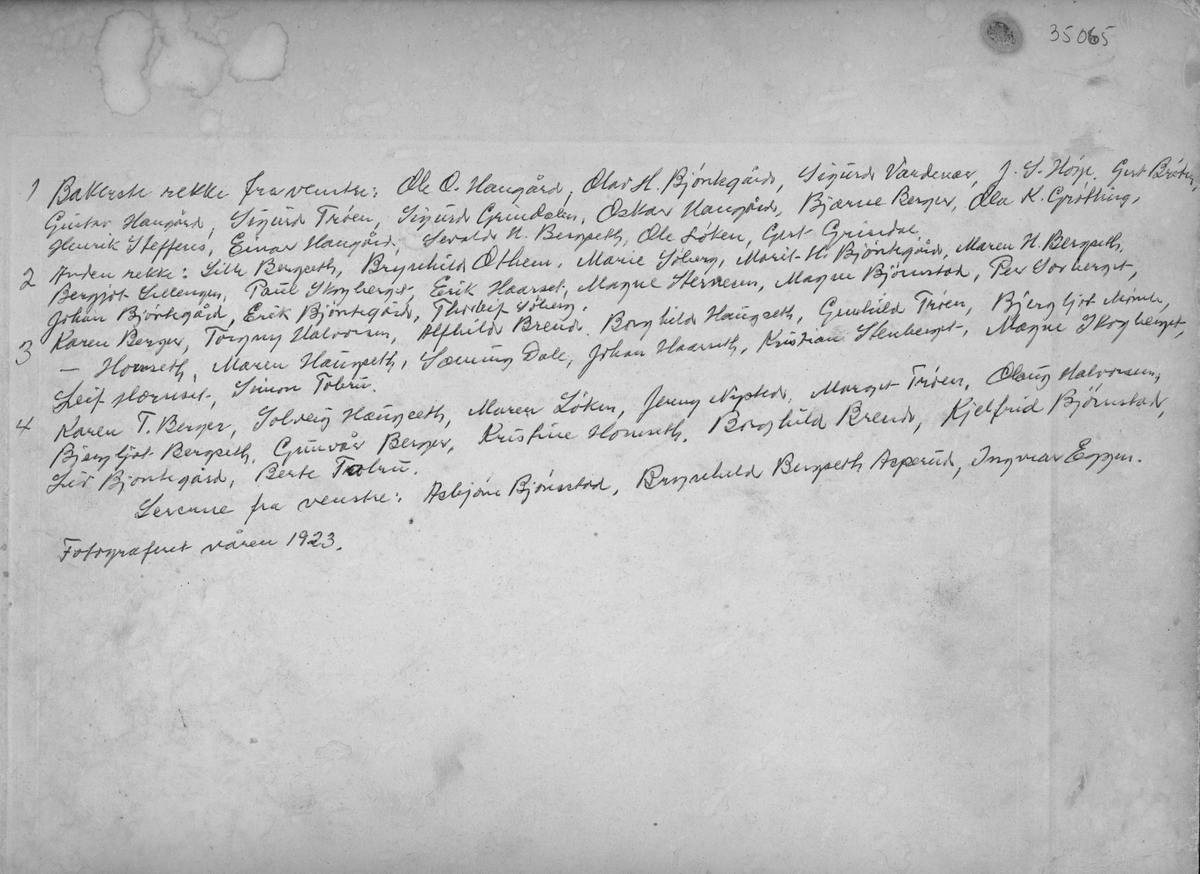 35065
1 Bakerste rekke fra venstre: Ole O. Haugård, Olav H. Bjöntegård, Sigurd Vardenær, J. S. Höye, Gert Bråten,
Gustav Haugård, Sigurd Tröen, Sigurd Grindalen, Oskar Haugård, Bjarne Berger, Ola K. Grötting,
Henrik Steffens, Einar Haugård, Sevald H. Bergseth, Ole Löken, Gert Grindal.
2 Anden rekke: Lilly Bergseth, Brynhild Othem, Marie Söberg, Marit H. Bjöntegård, Maren H. Bergseth,
Bergjot Lillengen, Paul Skogberget, Erik Haarset, Magne Hernesen, Magne Björnstad, Per Sorberget,
Johan Bjöntegård, Erik Bjöntegård, Thorleif Söberg.
3 Karen Berger, Torgny Halvorsen, Alfhild Brend, Borghild Haugseth, Gunhild Troen, Bjergljot
— Homseth, Maren Haugseth, Sæming Dale, Johan Haarseth, Kristian Stenberget, Magne Skogberget,
Leif Hærnset, Simon Tobru.
4 Karen T. Berger, Solveig Haugseth, Maren Löken, Jenny Nysted, Margit Tröen, Olaug Halvorsen,
Bjergljot Bergseth, Gunvår Berger, Kristine Homseth, Borghild Brend, Kjelfrid Björnstad,
Liv Bjöntegård, Berte Tobru.
Lererne fra venstre: Asbjörn Björnstad, Brynhild Bergseth Asperud, Ingvar Eggen.
Fotograferet våren 1923.